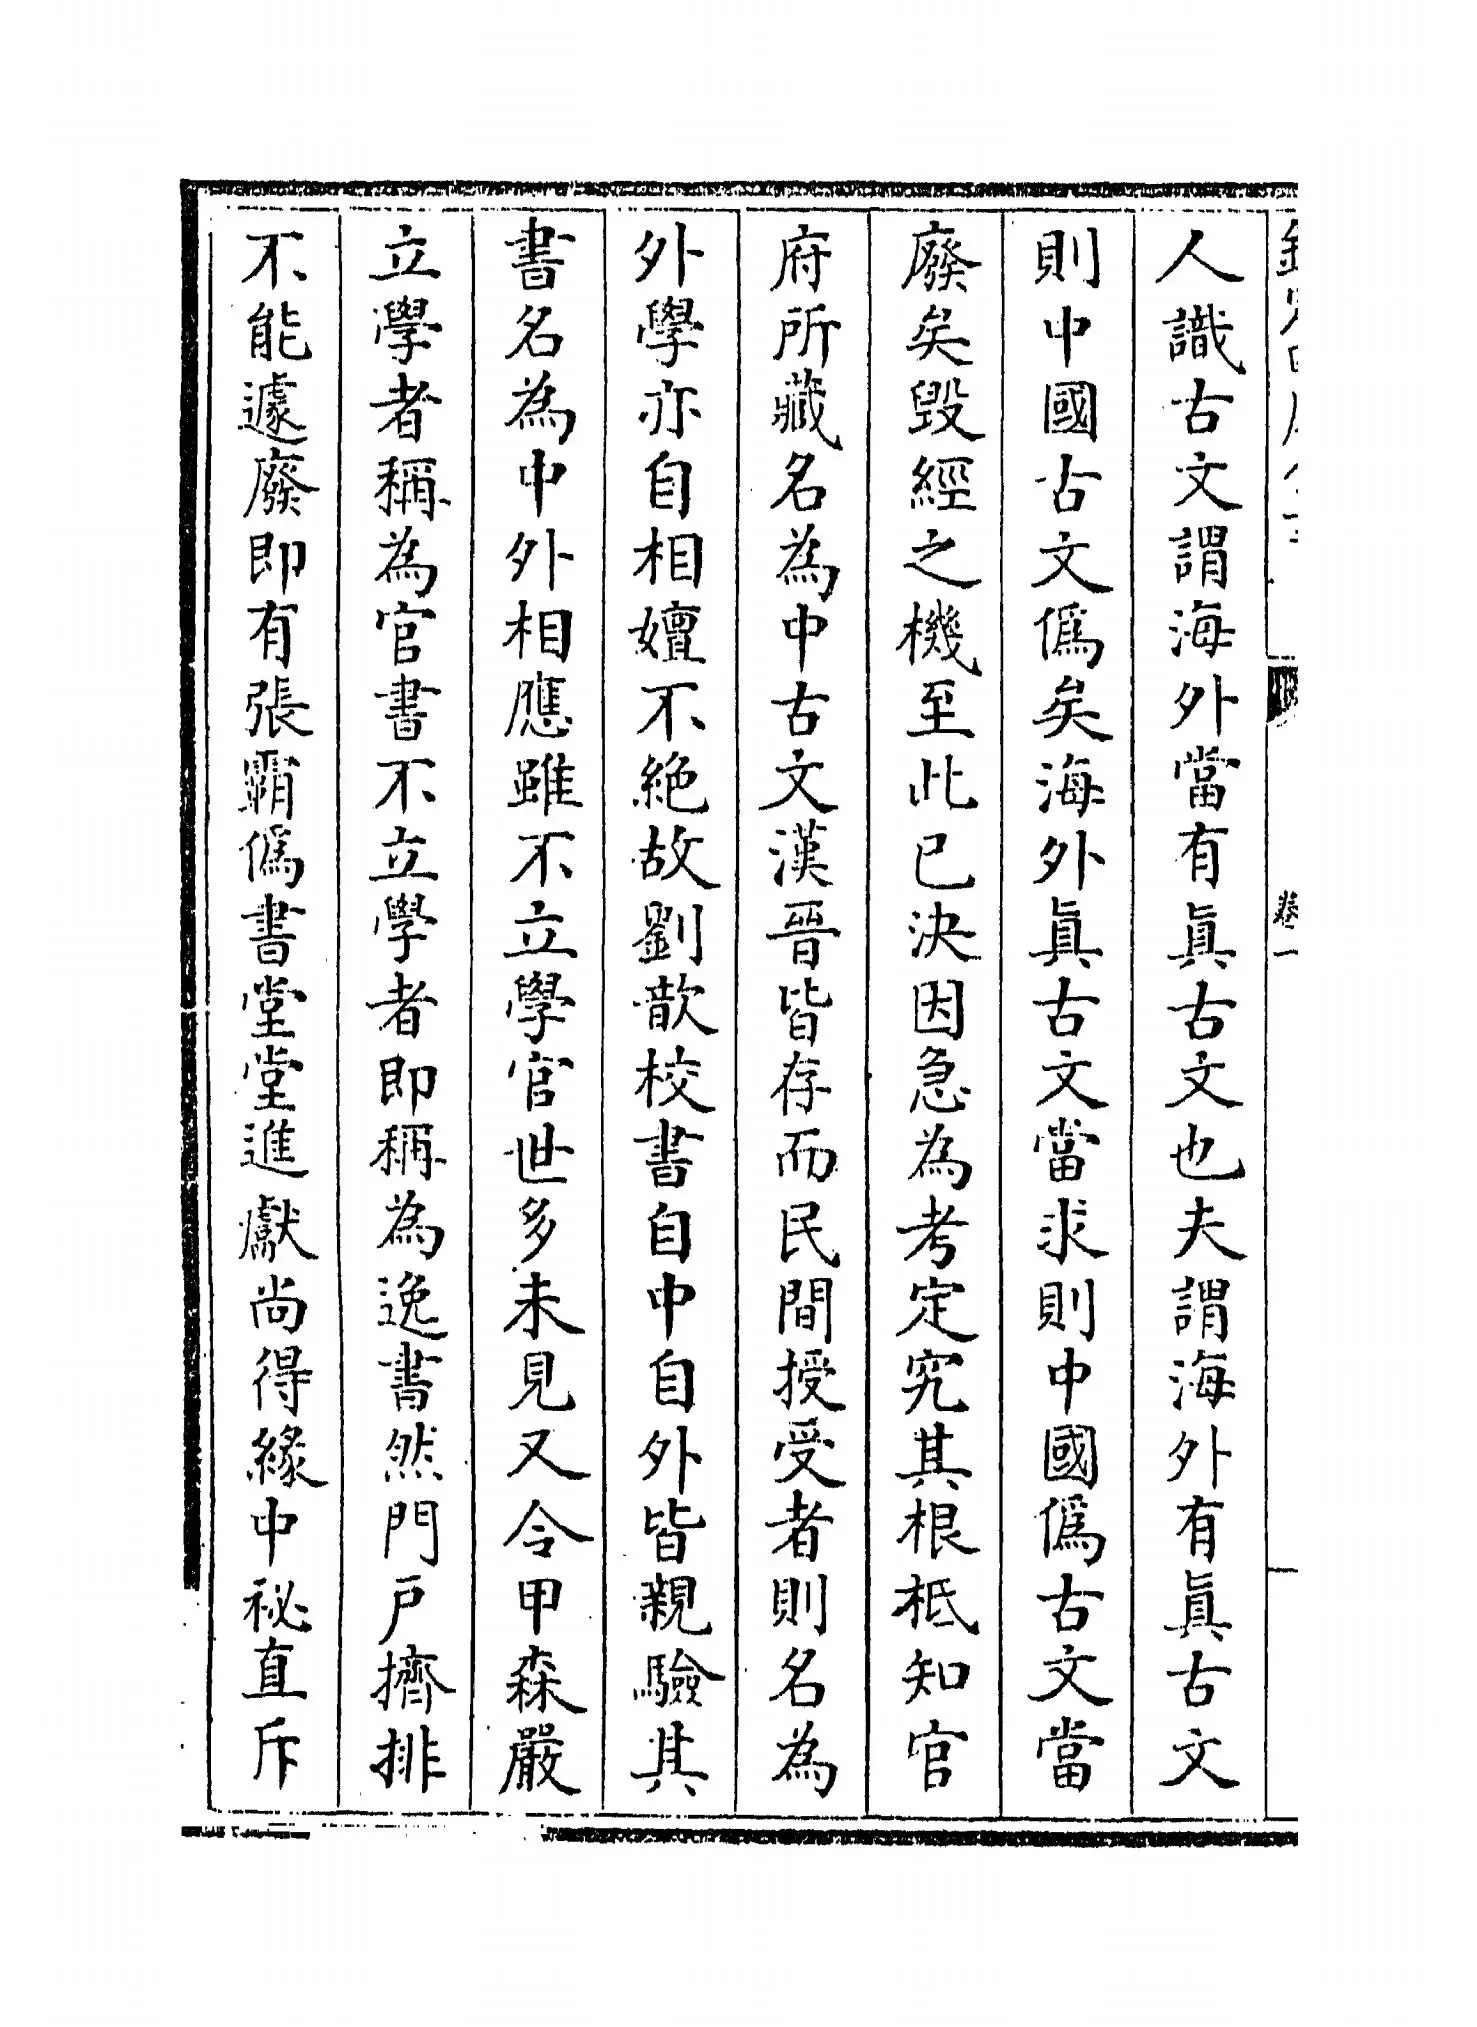 人識古文謂海外當有眞古文也夫謂海外有眞古文
則中國古文僞矣海外眞古文當求則中國僞古文當
廢矣毀經之機至此已決因急為考定究其根柢知官
府所藏名為中古文漢晉皆存而民間授受者則名為
外學亦自相嬗不絶故劉歆校書自中自外皆親驗其
書名為中外相應雖不立學官世多未見又令甲森嚴
立學者稱為官書不立學者即稱為逸書然門戶擠排
不能遽廢即有張霸僞書堂堂進獻尚得緣中祕直斥
卷一